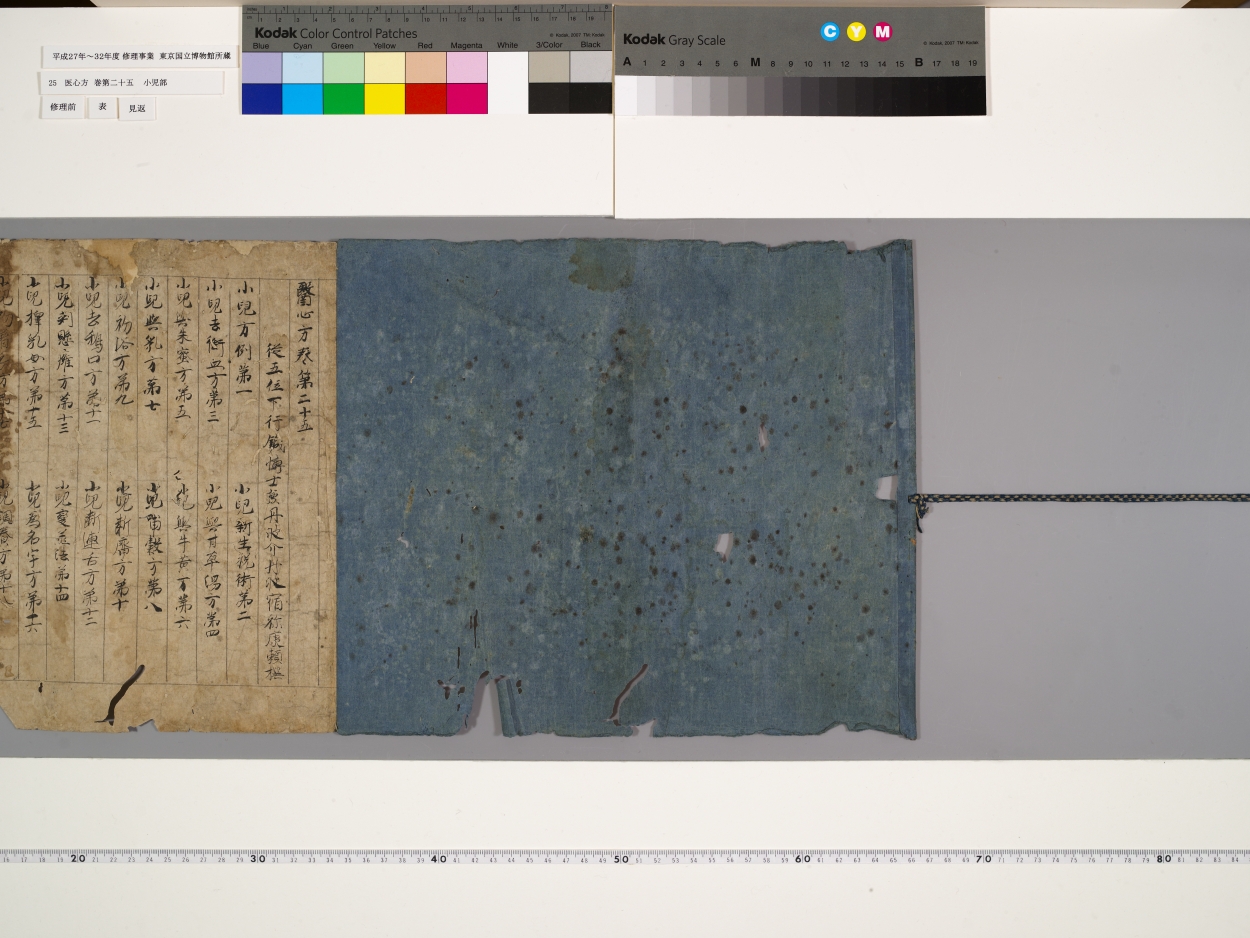 平成27年～32年度 修理事業 東京国立博物館所蔵
25 医心方 巻第二十五 小児部
修理前
表
見返
Kodak Color Control Patches
© Kodak, 2007 TM: Kodak
Blue Cyan Green Yellow Red Magenta White 3/Color Black
Kodak Gray Scale
C Y M
© Kodak, 2007 TM: Kodak
A 1 2 3 4 5 6 M 7 8 9 10 11 12 13 14 15 B 17 18 19
醫心方巻第二十五
從五位下行鍼博士兼丹波介丹波宿祢康頼撰
小兒方例第一 小兒新生祝術第二
小兒去衘血方第三 小兒與甘草湯方第四
小兒與朱蜜方第五 小兒與牛黄方第六
小兒與乳方第七 小兒哺穀方第八
小兒初浴方第九 小兒斷齎方第十
小兒去鵝口方第十一 小兒斷連舌方第十二
小兒刺懸癰方第十三 小兒變蒸法第十四
小兒擇乳母方第十五 小兒名字方第十六
20 30 40 50 60 70 80